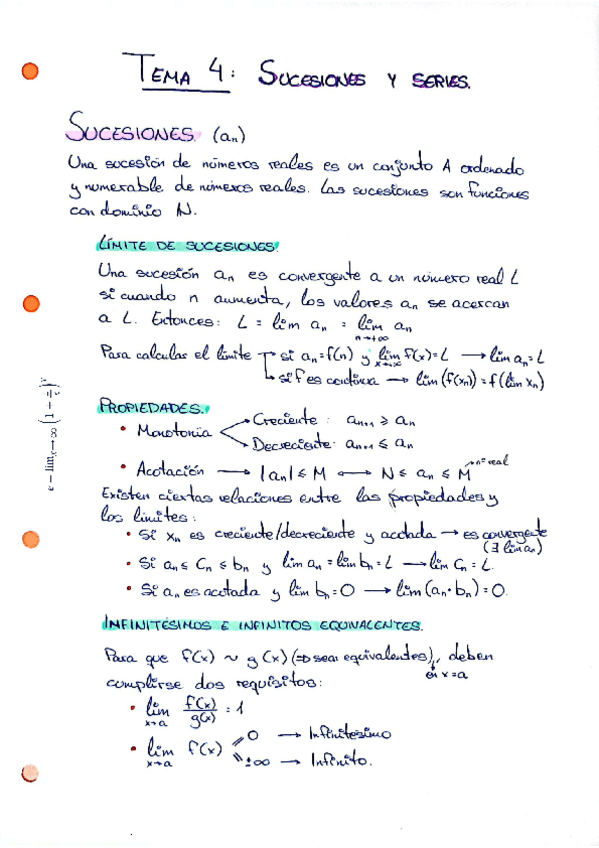 TEMA 4: SUCESIONES Y SERIES.
SUCESIONES. (aₙ)
Una sucesión de números reales es un conjunto A ordenado
y numerable de números reales. Las sucesiones son funciones
con dominio N.
LÍMITE DE SUCESIONES.
Una sucesión aₙ es convergente a un número real L
si cuando n aumenta, los valores aₙ se acercan
a L. Entonces: L = lim aₙ = lim aₙ
n→+∞
Para calcular el límite → si aₙ=f(n) y lim f(x)=L → lim aₙ=L
x→∞
→ si f es continua → lim (f(xₙ)) = f(lim xₙ)
PROPIEDADES.
• Monotonía → Creciente: aₙ₊₁ ≥ aₙ
→ Decreciente: aₙ₊₁ ≤ aₙ
• Acotación → |aₙ| ≤ M ↔ N ≤ aₙ ≤ M → nº real
Existen ciertas relaciones entre las propiedades y
los límites:
• Si xₙ es creciente/decreciente y acotada → es convergente
(∃ lim aₙ)
• Si aₙ ≤ cₙ ≤ bₙ y lim aₙ = lim bₙ = L → lim cₙ = L.
• Si aₙ es acotada y lim bₙ = 0 → lim (aₙ·bₙ) = 0.
INFINITÉSIMOS E INFINITOS EQUIVALENTES.
Para que f(x) ~ g(x) (⇒ sean equivalentes), deben
en x=a
cumplirse dos requisitos:
• lim f(x)/g(x) = 1
x→a
• lim f(x) = 0 → Infinitésimo
x→a = ±∞ → Infinito.